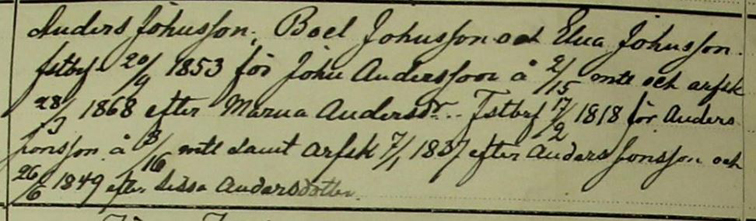 Anders Johnsson, Boel Johnsson och Elna Johnsson.
fstbrf 20/9 1853 för John Andersson å 2/15 mtl och arfsk
28/3 1868 efter Marna Andersdr. Fstbrf 17/2 1818 för Anders
Jonsson å 3/16 mtl samt arfsk 7/1 1837 efter Anders Jonsson och
26/6 1849 efter Sissa Andersdotter